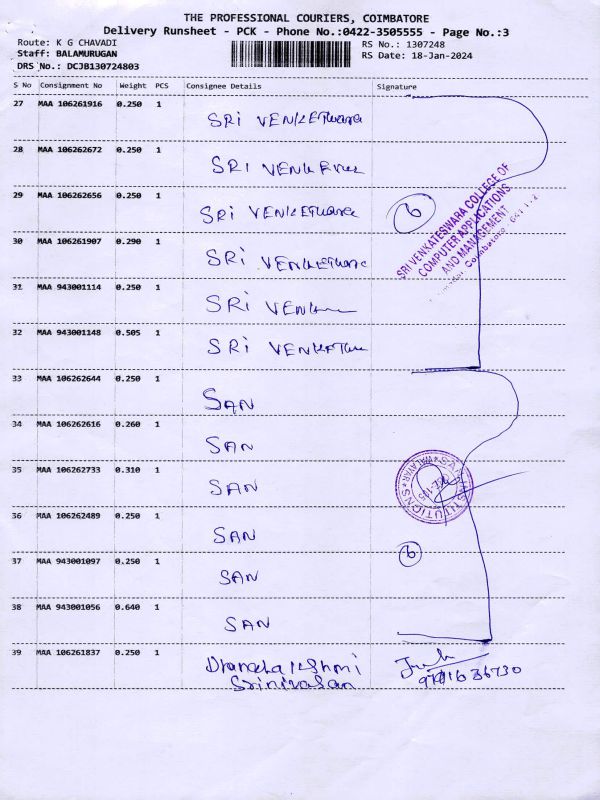 THE PROFESSIONAL COURIERS, COIMBATORE
Delivery Runsheet - PCK - Phone No.:0422-3505555 - Page No.:3
Route: K G CHAVADI RS No.: 1307248
Staff: BALAMURUGAN RS Date: 18-Jan-2024
DRS No.: DCJB130724803
S No Consignment No Weight PCS Consignee Details Signature
27 MAA 106261916 0.250 1 SRi VENKEThwara
28 MAA 106262672 0.250 1 SRI
29 MAA 106262656 0.250 1 SRi VENKEThwara
6
SRI VENKATESWARA COLLEGE OF
COMPUTER APPLICATIONS
AND MANAGEMENT
Coimbatore
30 MAA 106261907 0.290 1 SRi VENKEThwara
31 MAA 943001114 0.250 1 SRi
32 MAA 943001148 0.505 1 SRi
33 MAA 106262644 0.250 1 SAN
34 MAA 106262616 0.260 1 SAN
35 MAA 106262733 0.310 1 SAN
SAN INSTITUTIONS
WALAYAR
36 MAA 106262489 0.250 1 SAN
6
37 MAA 943001097 0.250 1 SAN
38 MAA 943001056 0.640 1 SAN
39 MAA 106261837 0.250 1 Dhanalakshmi
Srinivasan